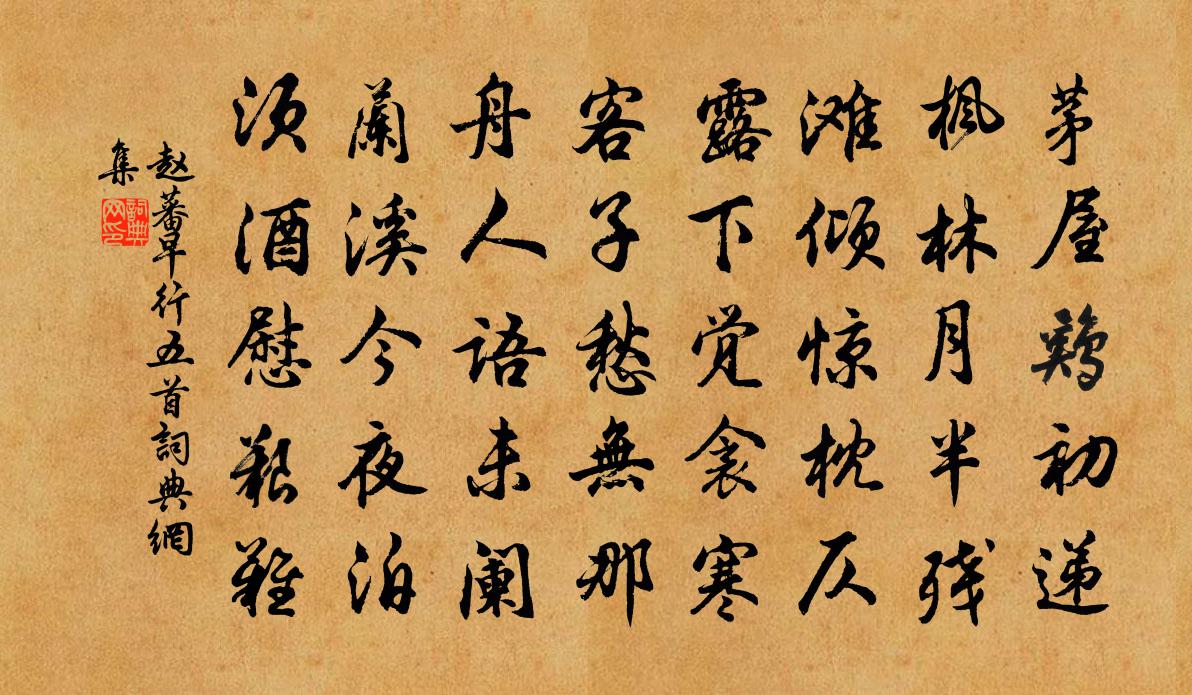 茅屋鷄初递
枫林月半残
滩倾惊枕仄
露下觉衾寒
客子愁無那
舟人語未阑
蘭溪今夜泊
须酒慰艰難
赵蕃早行五首詞典網
集
詞典
网印